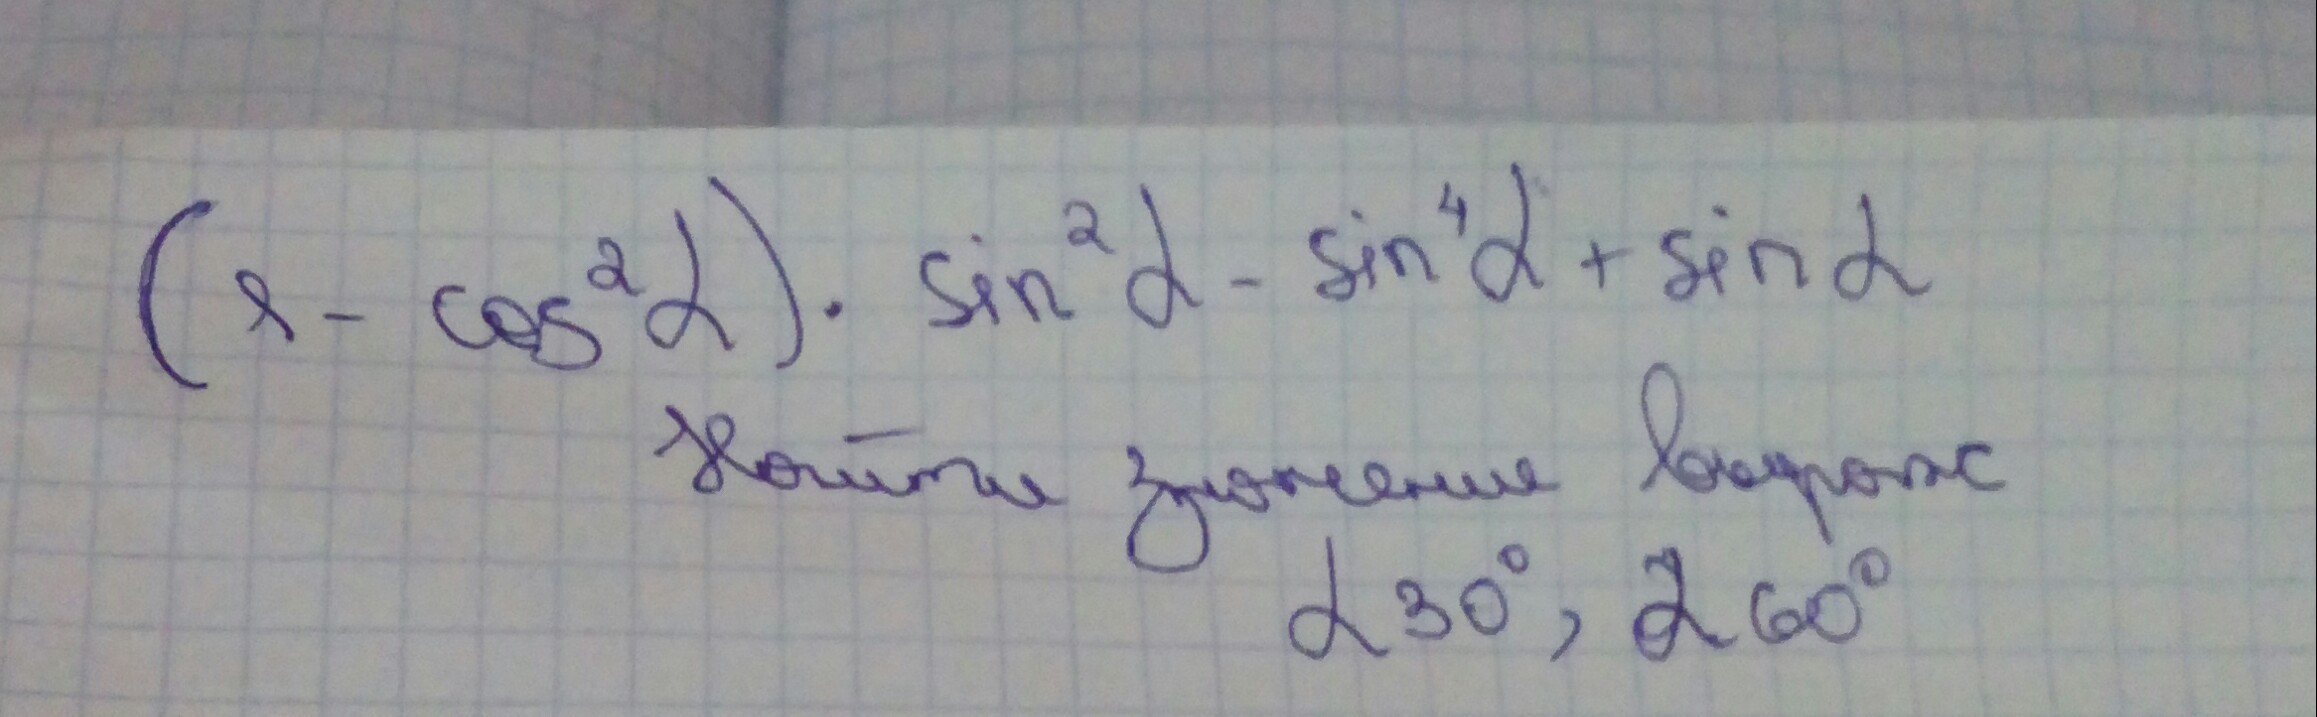 (1 - cos²α) · sin²α - sin⁴α + sin α
Найти значение выраж
α 30°, α 60°